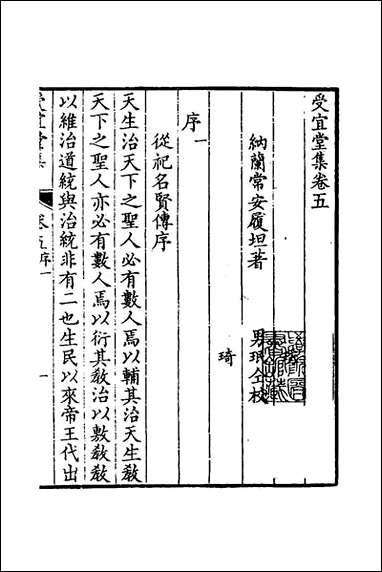 受宜堂集卷五
納蘭常安履坦著
男珉仝校
琦
序一
從祀名賢傳序
天生治天下之聖人必有數人焉以輔其治天生敎
天下之聖人亦必有數人焉以衍其敎治以敷敎敎
以維治道統與治統非有二也生民以來帝王代出
受宜堂集
卷五序一
一